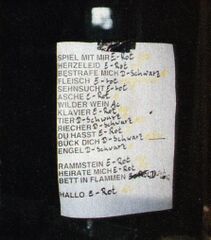 SPIEL MIT MIR E-Rot
HERZELEID E-Rot
BESTRAFE MICH D-Schwarz
FLEISCH E-Rot
SEHNSUCHT E-Rot
ASCHE E-Rot
WILDER WEIN Ac
KLAVIER E-Rot
TIER D-Schwarz
RIECHER D-Schwarz
DU HASST E-Rot
BÜCK DICH D-Schwarz
ENGEL D-Schwarz
RAMMSTEIN E-Rot
HEIRATE MICH E-Rot
BETT IN FLAMMEN
HALLO E-Rot